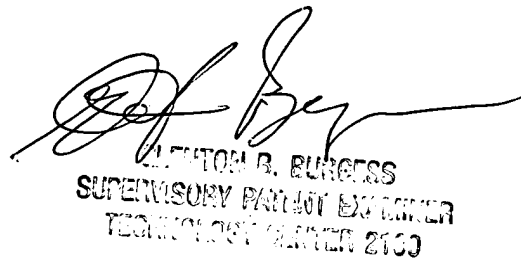 GLENTON B. BURGESS
SUPERVISORY PATENT EXAMINER
TECHNOLOGY CENTER 2100